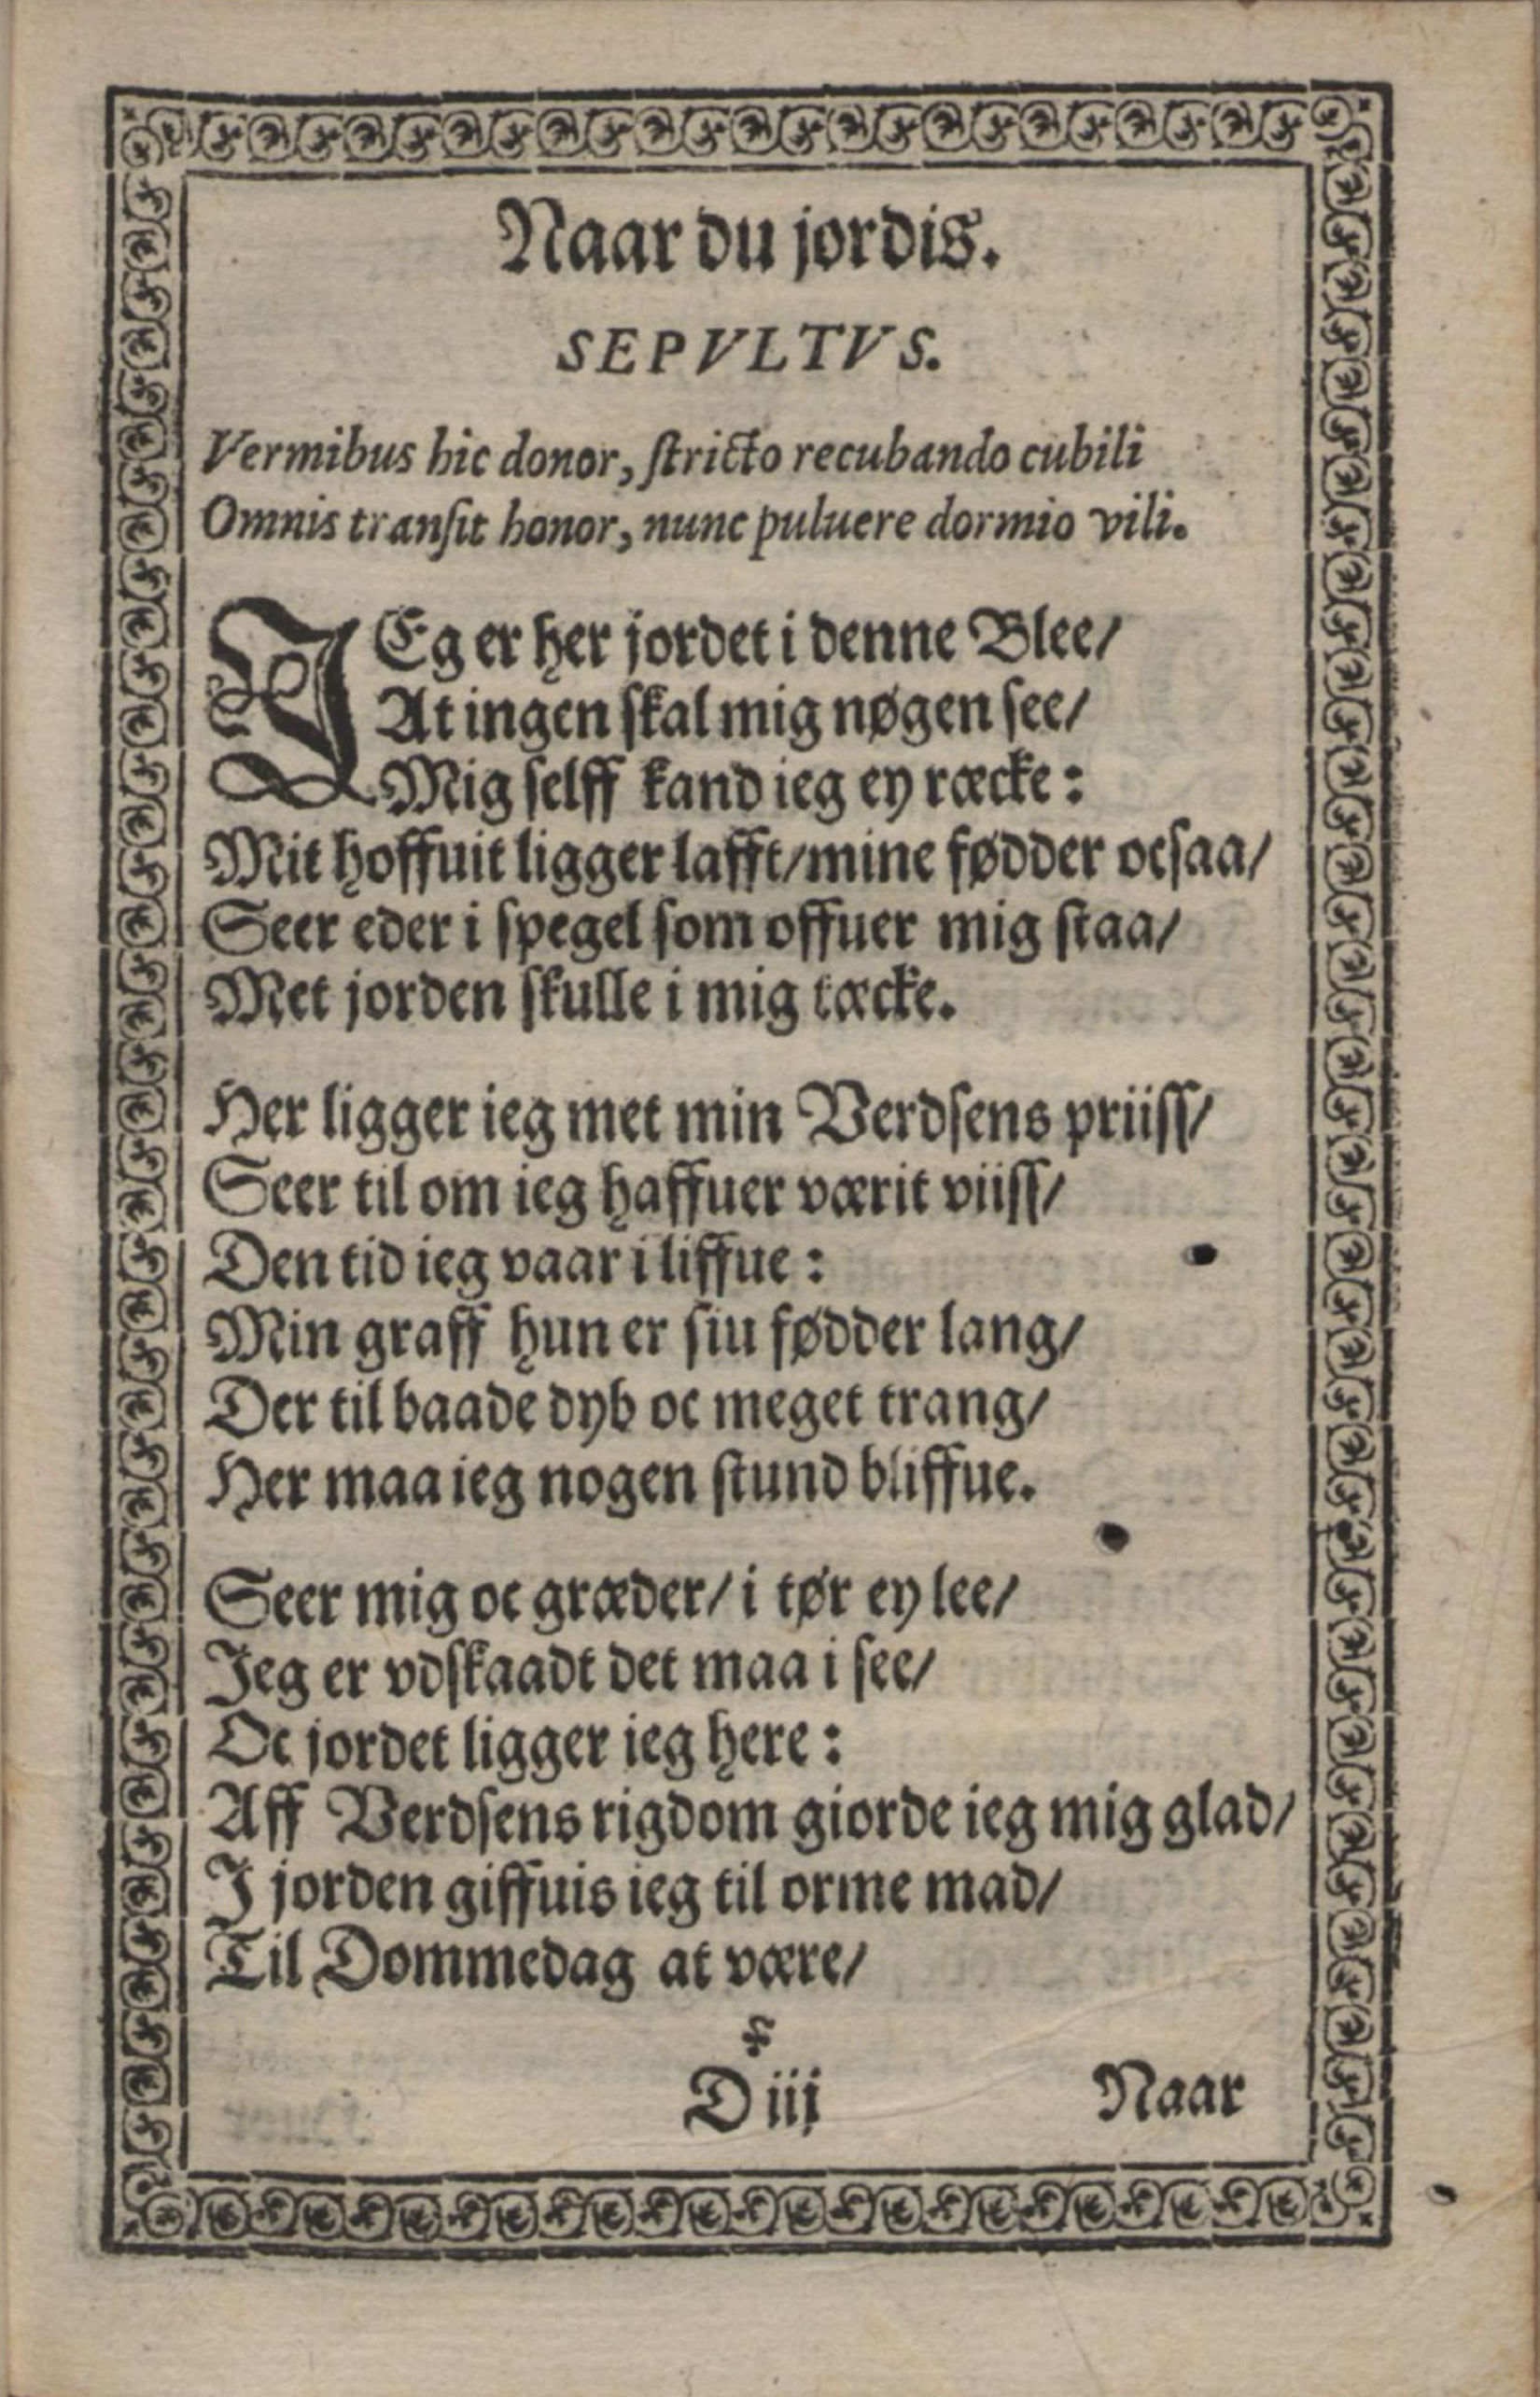 Naar du jordis.
SEPVLTVS.
Vermibus hic donor, ſtricto recubando cubili
Omnis tranſit honor, nunc puluere dormio vili.
JEg er her jordet i denne Blee/
At ingen ſkal mig nøgen ſee/
Mig ſelff kand ieg ey ræcke:
Mit hoffuit ligger lafft/mine fødder ocſaa/
Seer eder i ſpegel ſom offuer mig ſtaa/
Met jorden ſkulle i mig tæcke.
Her ligger ieg met min Verdſens priiſſ/
Seer til om ieg haffuer værit viiſſ/
Den tid ieg vaar i liffue:
Min graff hun er ſiu fødder lang/
Der til baade dyb oc meget trang/
Her maa ieg nogen ſtund bliffue.
Seer mig oc græder/ i tør ey lee/
Jeg er vdſkaadt det maa i ſee/
Oc jordet ligger ieg here:
Aff Verdſens rigdom giorde ieg mig glad/
J jorden giffuis ieg til orme mad/
Til Dommedag at være/
D iij
Naar